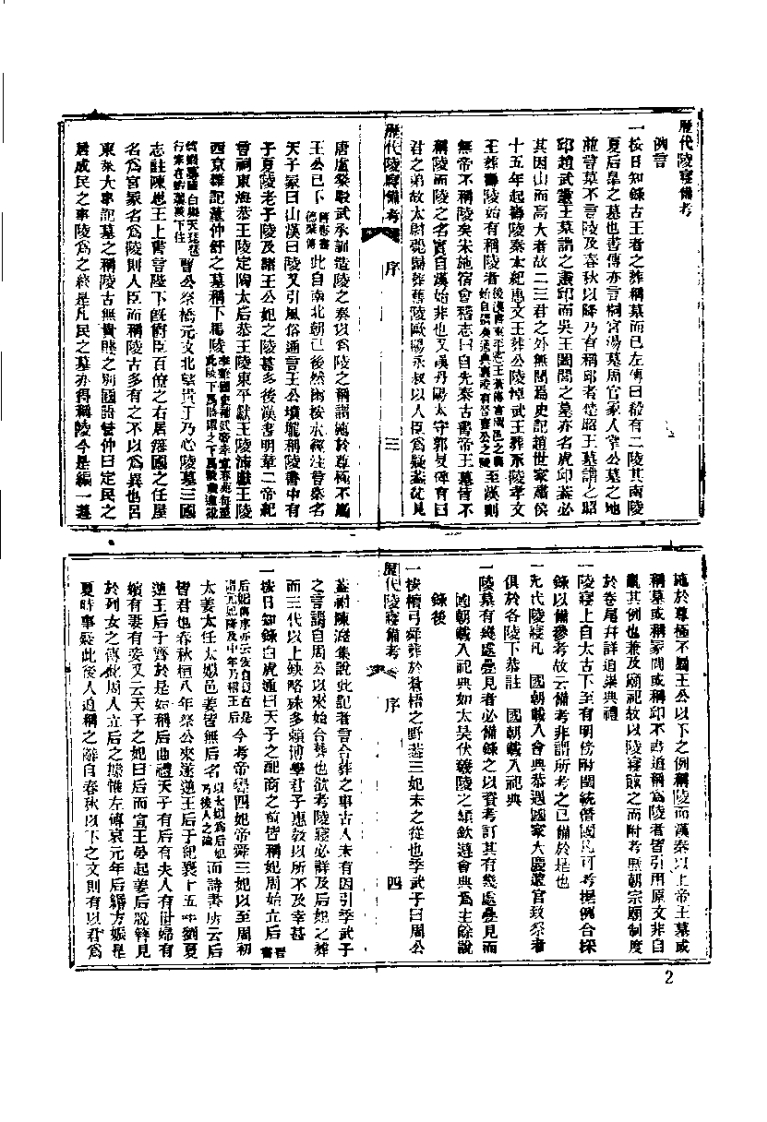 歷代陵寢備考
例言
一按日知錄古王者之葬稱墓而已左傳曰殽有二陵其南陵
夏后皋之墓也書傳亦言桐宮湯墓周官冢人掌公墓之地
並言墓不言陵及春秋以降乃有稱邱者楚昭王墓謂之昭
邱趙武靈王墓謂之靈邱而吳王闔閭之墓亦名虎邱蓋必
其因山而高大者故二三君之外無聞焉史記趙世家肅侯
十五年起壽陵秦本紀惠文王葬公陵悼武王葬永陵孝文
王葬壽陵始有稱陵者至漢則
無帝不稱陵矣宋施宿會稽志曰自先秦古書帝王墓皆不
稱陵而陵之名實自漢始非也又漢丹陽太守郭旻碑有曰
君之弟故太尉薨歸葬舊陵歐陽永叔以人臣為疑蓋從見
歷代陵寢備考 序 三
唐盧粲駁武承訓造陵之奏以為陵之稱謂施於尊極不屬
王公已下 此自南北朝已後然爾按水經注言秦名
天子冢曰山漢曰陵又引風俗通言王公墳壠稱陵書中有
子夏陵老子陵及諸王公妃之陵甚多後漢書明章二帝紀
言祠東海恭王陵定陶太后恭王陵東平獻王陵沛獻王陵
西京雜記董仲舒之墓稱下馬陵
曹公祭橋元文北望貴土乃心陵墓三國
志註陳思王上書言陛下既爵臣百僚之右居藩國之任屋
名為宮冢名為陵則人臣而稱陵古多有之不以為異也呂
東萊大事記墓之稱陵古無貴賤之別國語管仲曰定民之
居成民之事陵為之終是凡民之墓亦得稱陵今是編一遵
施於尊極不屬王公以下之例稱陵而漢秦以上帝王墓或
稱墓或稱冢間或稱邱不敢追稱為陵者皆引用原文非自
亂其例也兼及廟祀故以陵寢臨之而附考熙朝宗廟制度
於卷尾并詳追崇典禮
一陵寢上自太古下至有明傍附閏統僭國凡可考據例合採
錄以備參考故云備考非謂所考之已備於是也
一先代陵寢凡 國朝載入會典恭遇國家大慶遣官致祭者
俱於各陵下恭註 國朝載入祀典
一陵墓有幾處疊見者必備錄之以資考訂其有幾處疊見而
國朝載入祀典如太昊伏羲陵之類欽遵會典為主餘說
錄後
一按檀弓舜葬於蒼梧之野蓋三妃未之從也季武子曰周公
歷代陵寢備考 序 四
蓋祔陳澔集說此記者言合葬之事古人未有因引季武子
之言謂自周公以來始合葬也欲考陵寢必詳及后妃之葬
而三代以上缺略殊多賴博學君子應教以所不及幸甚
一按日知錄白虎通曰天子之配商之前皆稱妃周始立后
今考帝嚳四妃帝舜三妃以至周初
太姜太任太姒邑姜皆無后名 而詩書所云后
皆君也春秋桓八年祭公來遂逆王后于紀襄十五年劉夏
逆王后于齊於是始稱后曲禮天子有后有夫人有世婦有
嬪有妻有妾又云天子之妃曰后而宣王晏起姜后脫簪見
於列女之傳此周人立后之據惟左傳哀元年后緡方娠是
夏時事疑此後人追稱之辭自春秋以下之文則有以君為
2